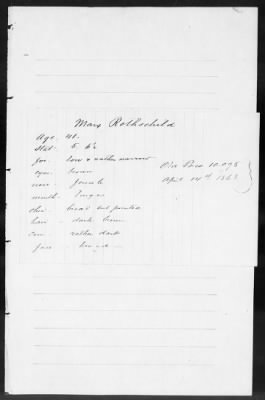 Max Rothschild
Age. 41.
Stat. 5. 6½
for. low & rather narrow
eyes. brown
nose. female
mouth. large
chin. broad but pointed
hair. dark brown
com. rather dark
face. broad
Old Pass 10.095
April 14th 1863